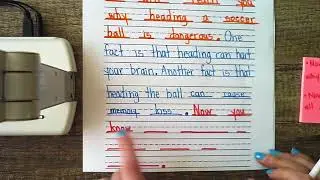 teach you
why heading a soccer
ball is dangerous. One
fact is that heading can hurt
your brain. Another fact is that
heading the ball can cause
memory loss. Now you
know
Now